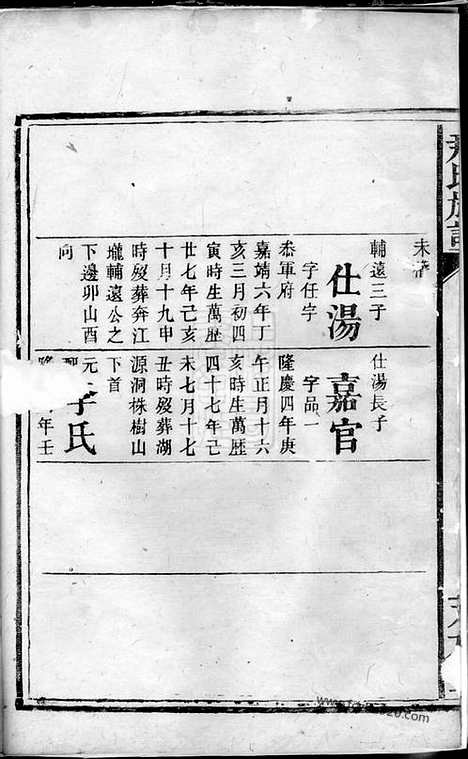 氏族譜
未
輔遠三子
仕湯
字任宇
叅軍府
嘉靖六年丁
亥三月初四
寅時生萬歷
廿七年己亥
十月十九申
時殁葬奔江
壠輔遠公之
下邊卯山酉
向
仕湯長子
嘉官
字品一
隆慶四年庚
午正月十六
亥時生萬歷
四十七年己
未七月十七
丑時殁葬湖
源洞株樹山
下首
元
李氏
年壬